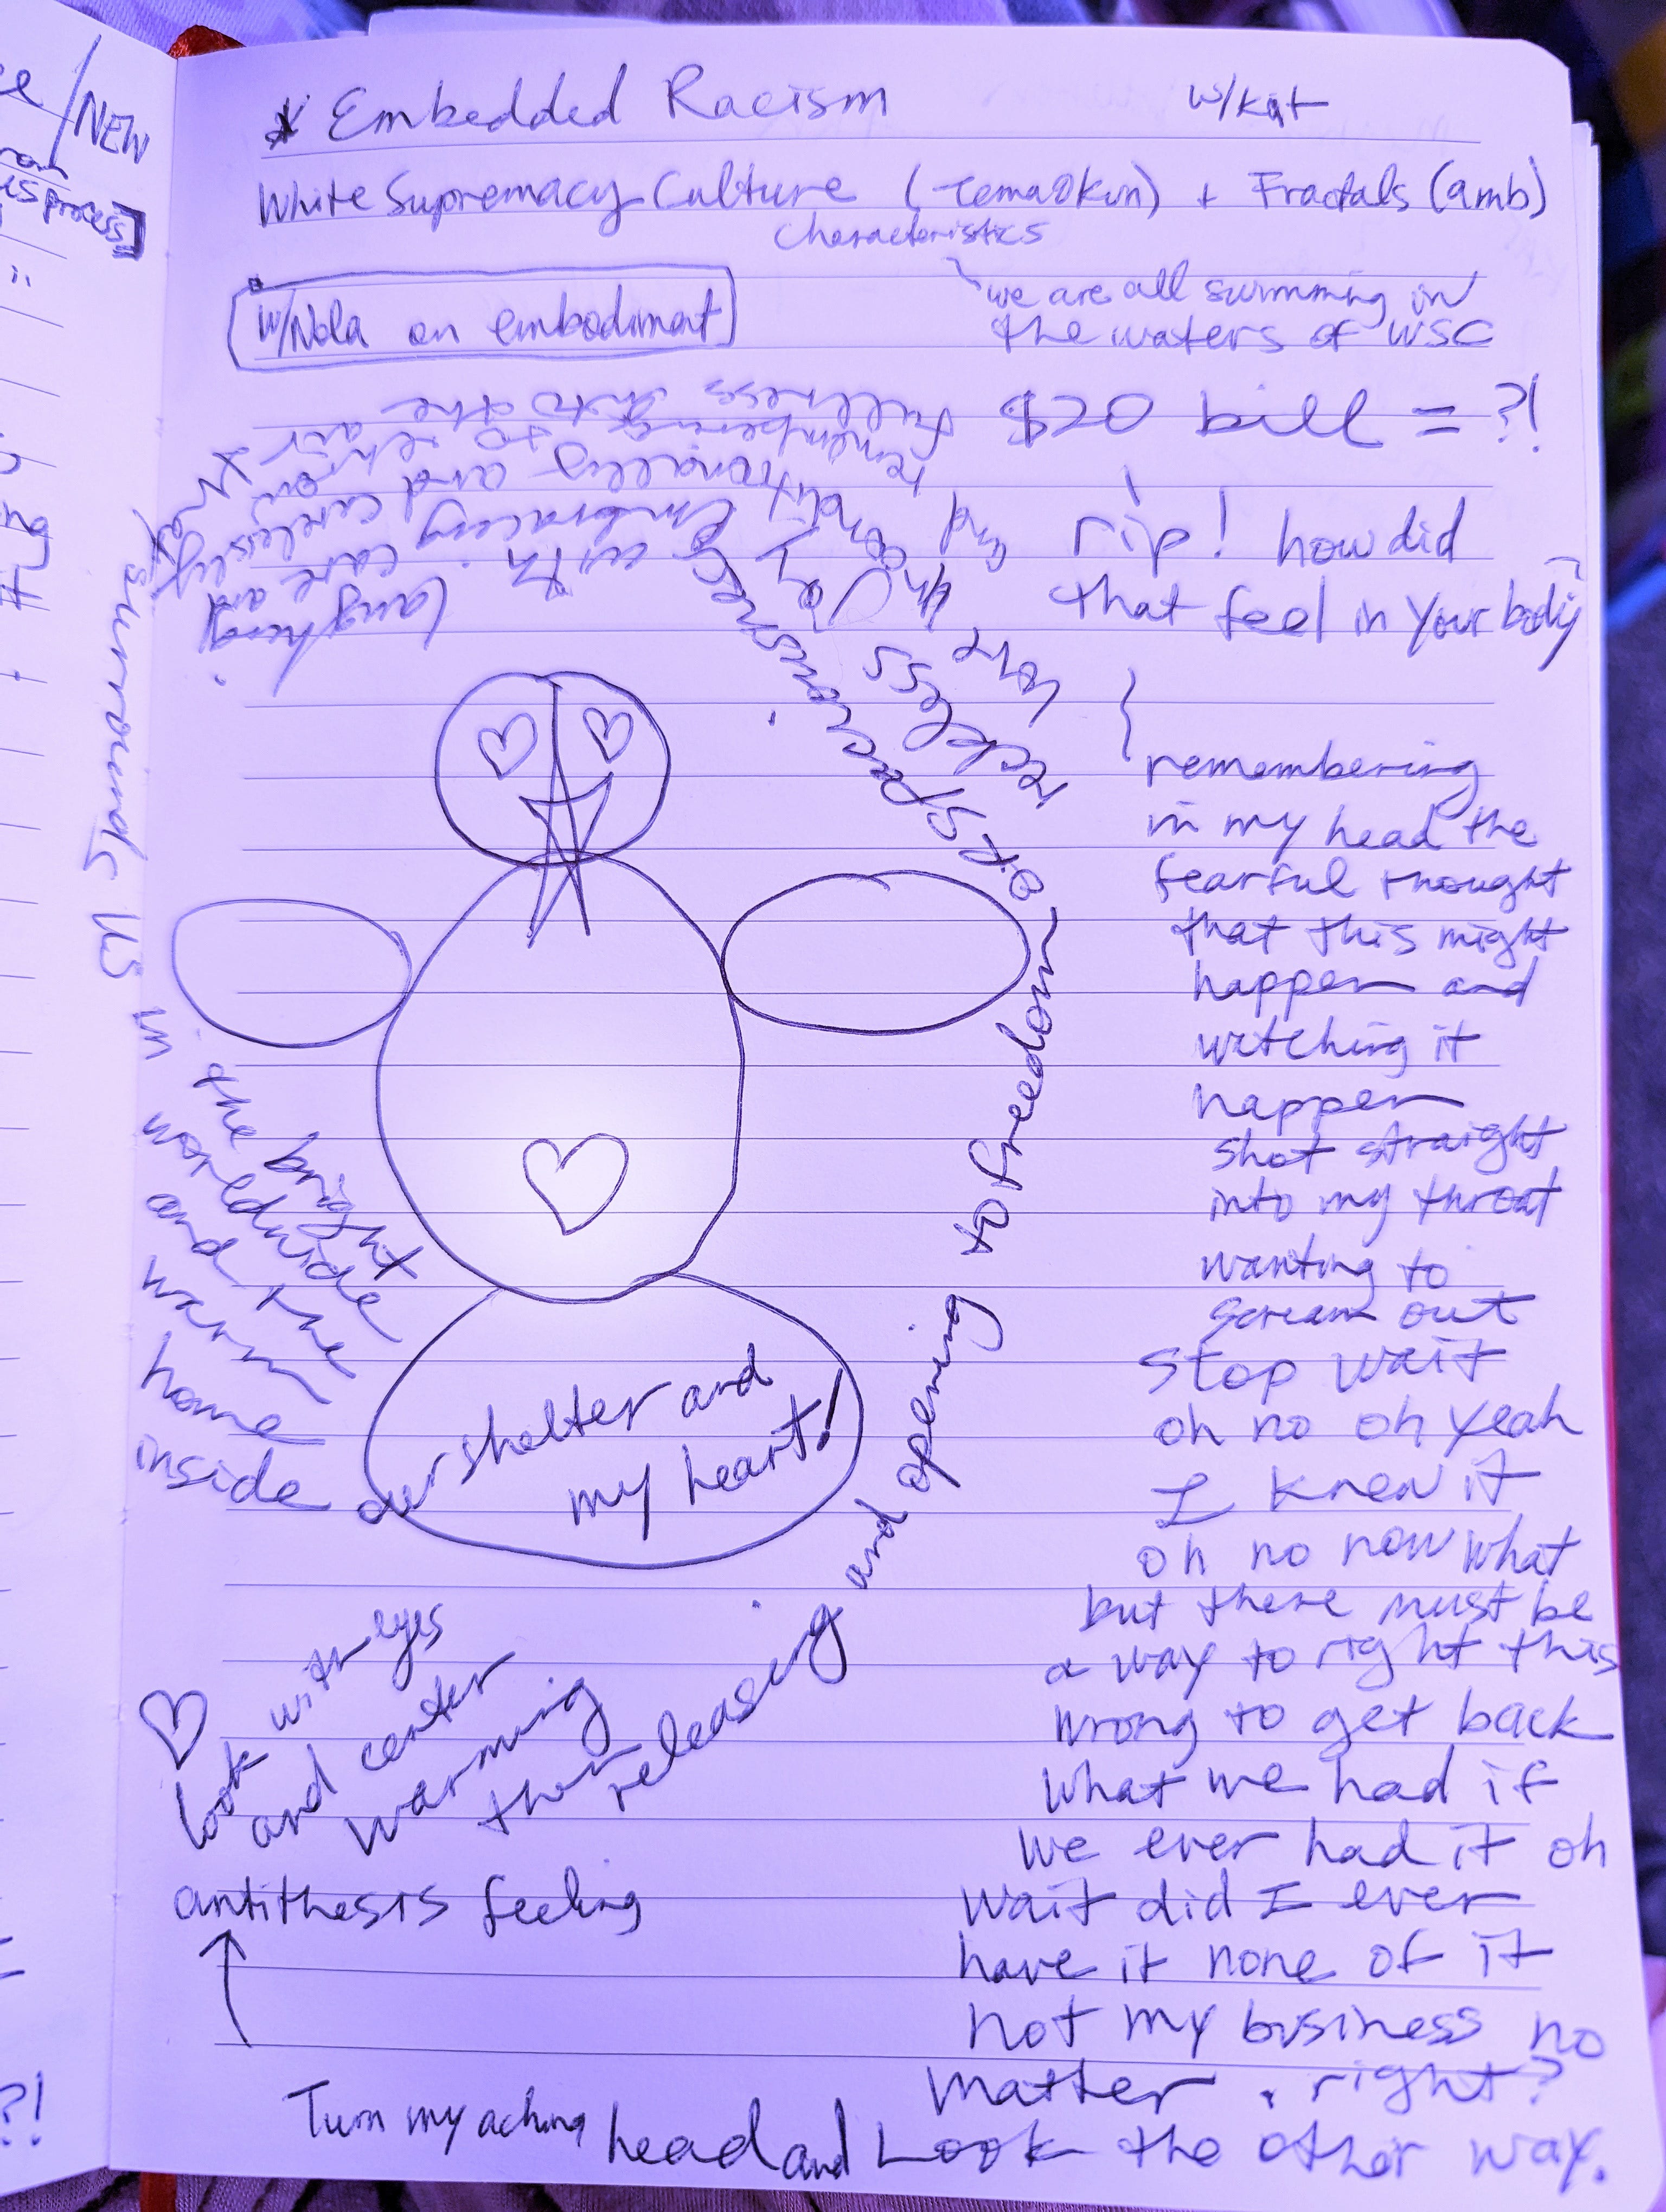 ce / NEW
ess process]
?!
* Embedded Racism w/kat
White Supremacy Culture (Tema Okun) + Fractals (amb)
characteristics
we are all swimming in
the waters of WSC
w/Nola on embodiment
$20 bill = ?!
rip! how did
that feel in your body
remembering
in my head the
fearful thought
that this might
happen and
watching it
happen
shot straight
into my throat
wanting to
scream out
stop wait
oh no oh yeah
I knew it
oh no now what
but there must be
a way to right this
wrong to get back
what we had if
we ever had it oh
wait did I ever
have it none of it
not my business no
matter. right?
Turn my aching head and Look the other way.
antithesis feeling
look with eyes
and center
warming
then
releasing and opening to freedom & spaciousness
reckless
love
Joy
unconditionally and
and remembering to
fullness into the
air
embracing
with
laughing
care and
carelessly
that
surrounds us
in the bright
worldwide
and the
warm
home
inside
our shelter and
my heart!